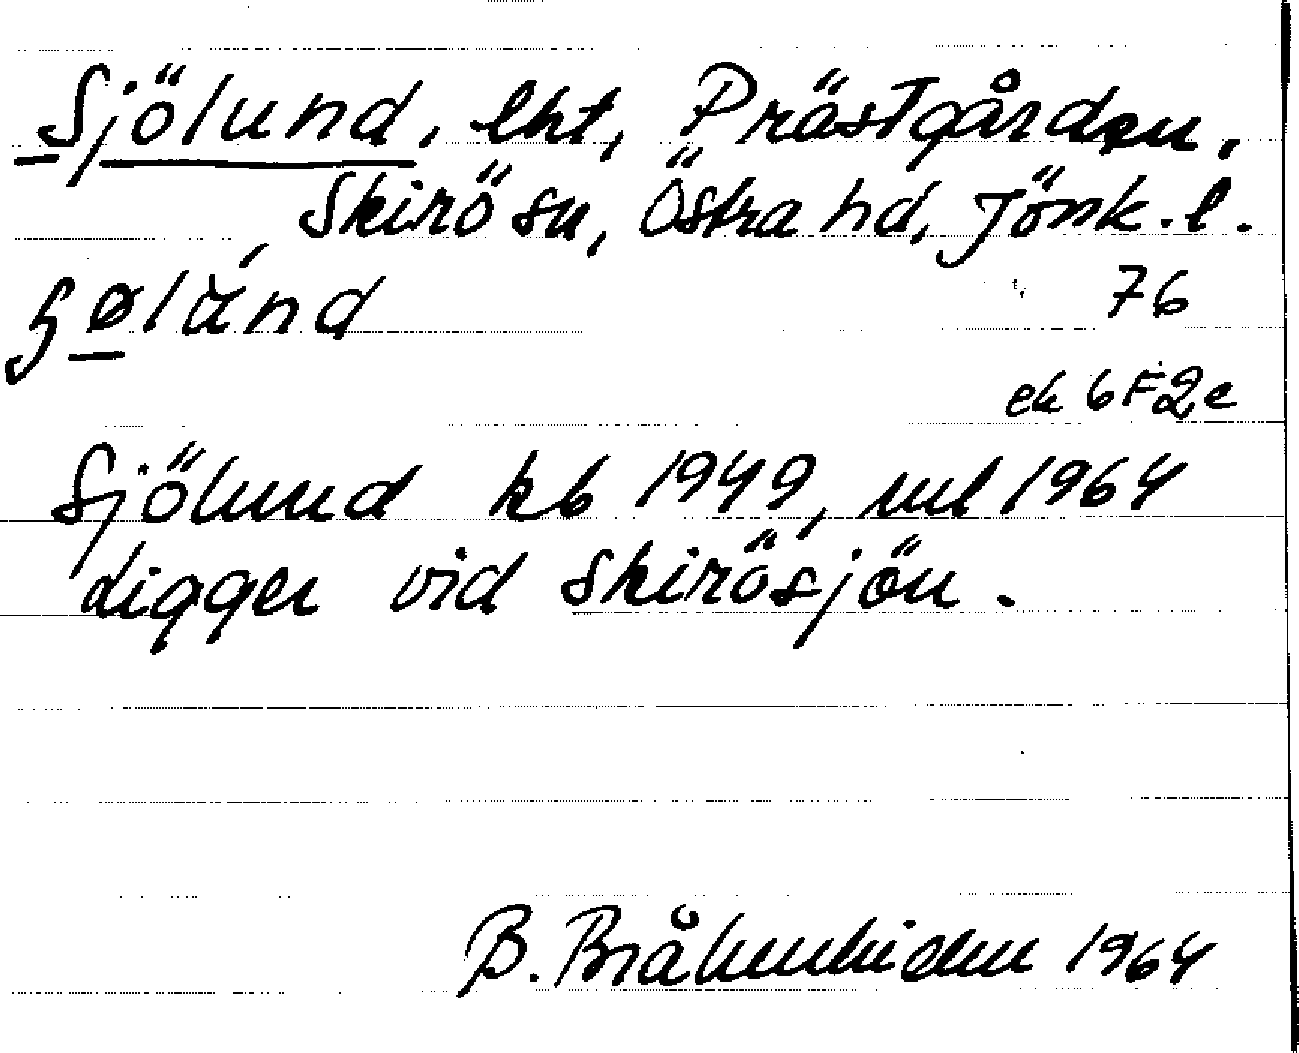 Sjölund, lht, Prästgården,
Skirö sn, Östra hd, Jönk. l.
76
ek 6F2e
Sjölund kb 1949, ml 1964
Ligger vid Skirösjön.
B. 1964